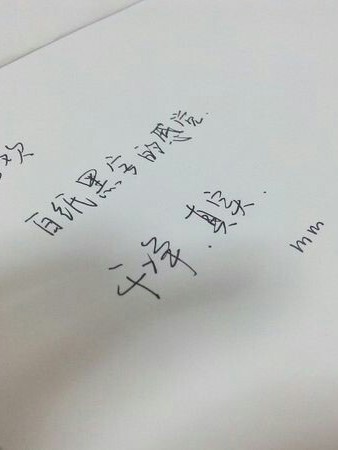 欢
白纸黑字的感觉.
干净.真实.
mm